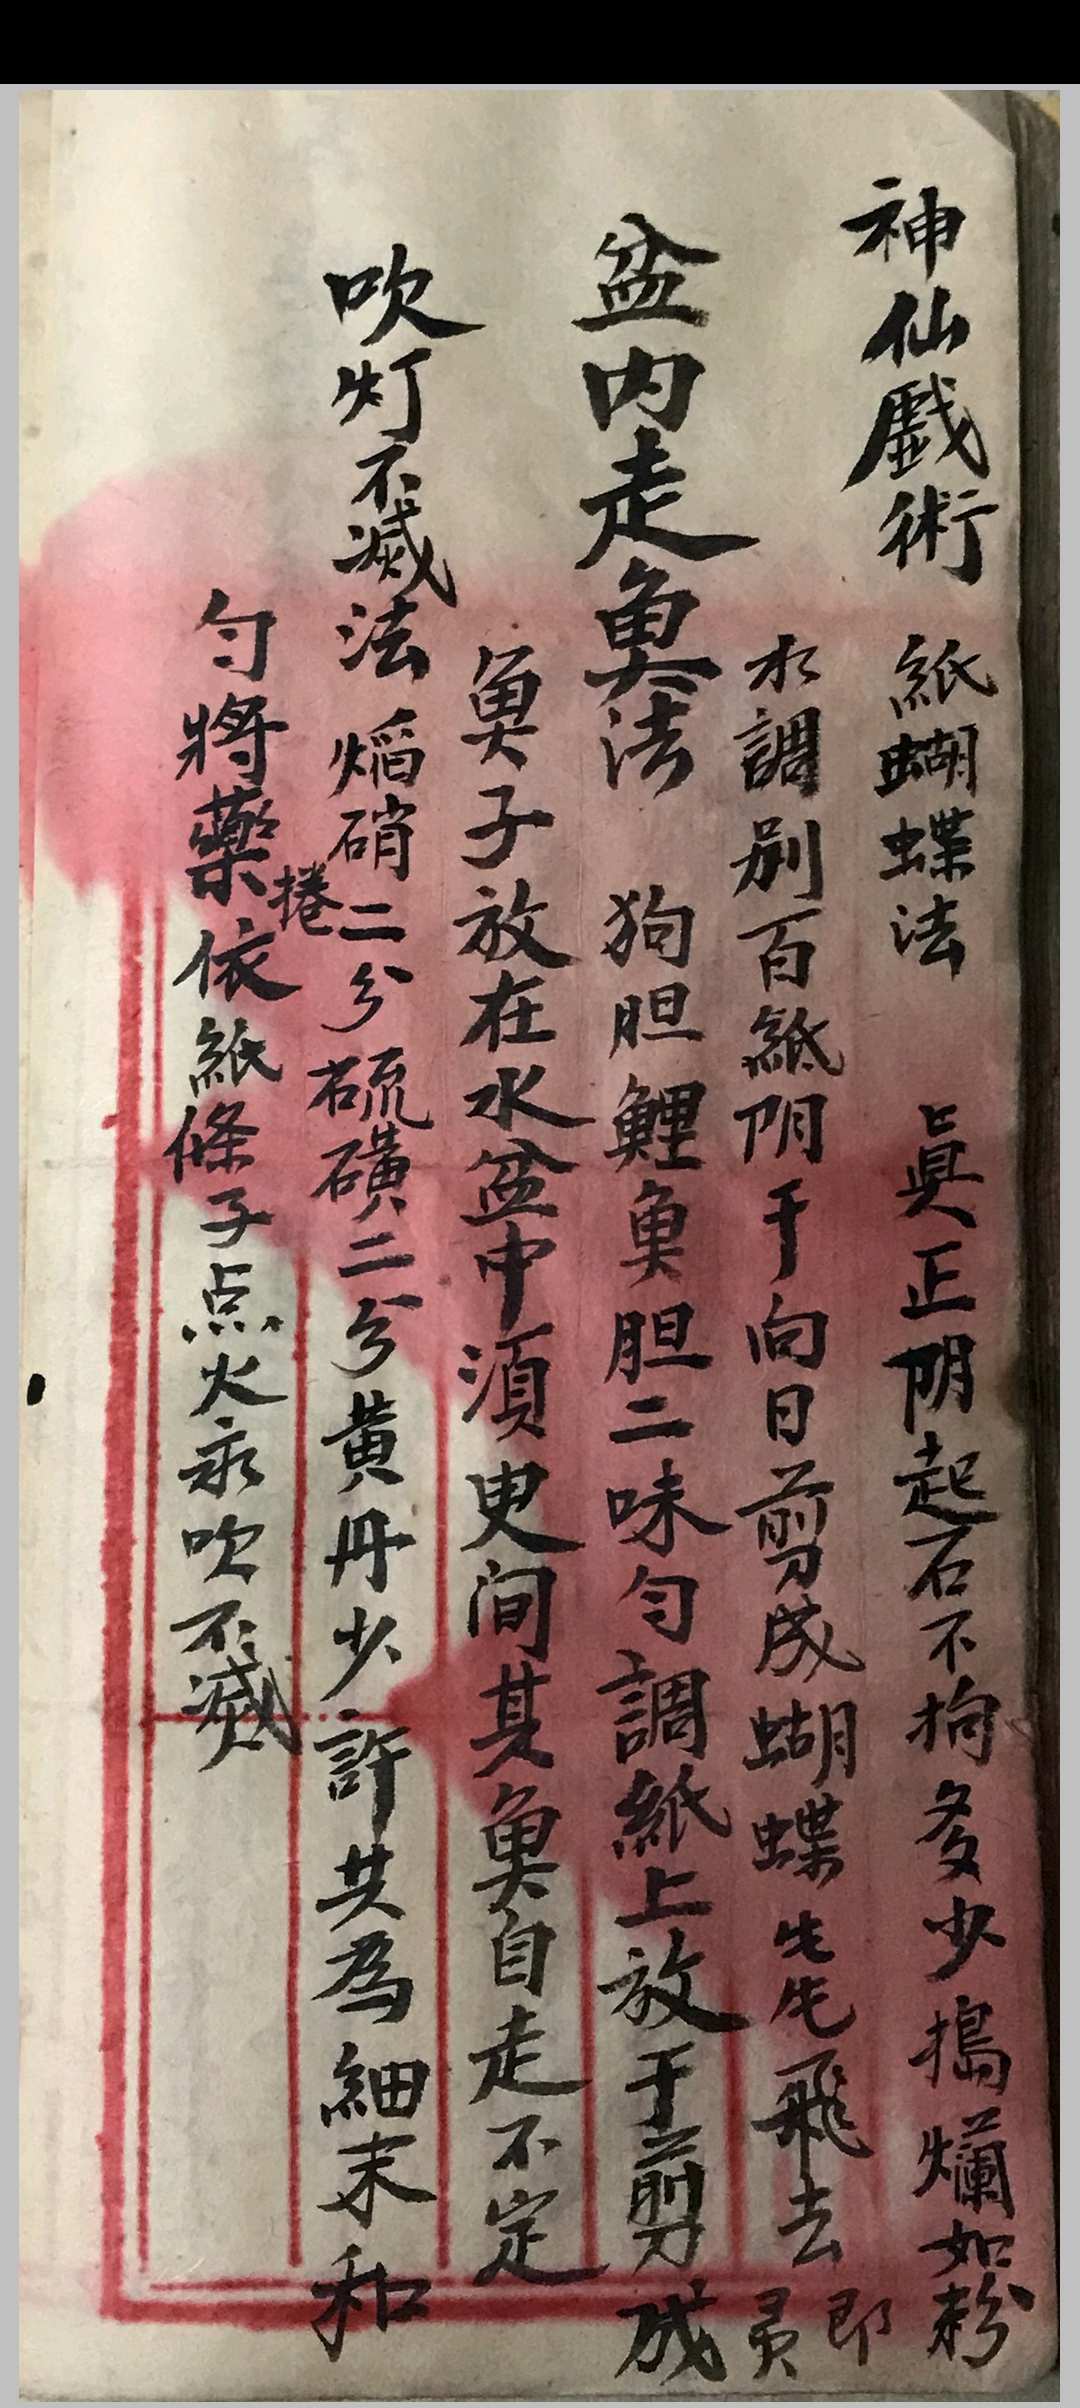 神仙戲術 紙蝴蝶法 眞正阴起石不拘多少搗爛如粉
水調刷百紙阴干向日剪成蝴蝶 飛去 即灵
盆内走魚法 狗胆鯉魚胆二味匀調紙上放干剪成
魚子放在水盆中須臾间其魚自走不定
吹灯不滅法 焰硝二分硫磺二分黄丹少許共為細末和
匀將藥捲依紙條子点火永吹不滅